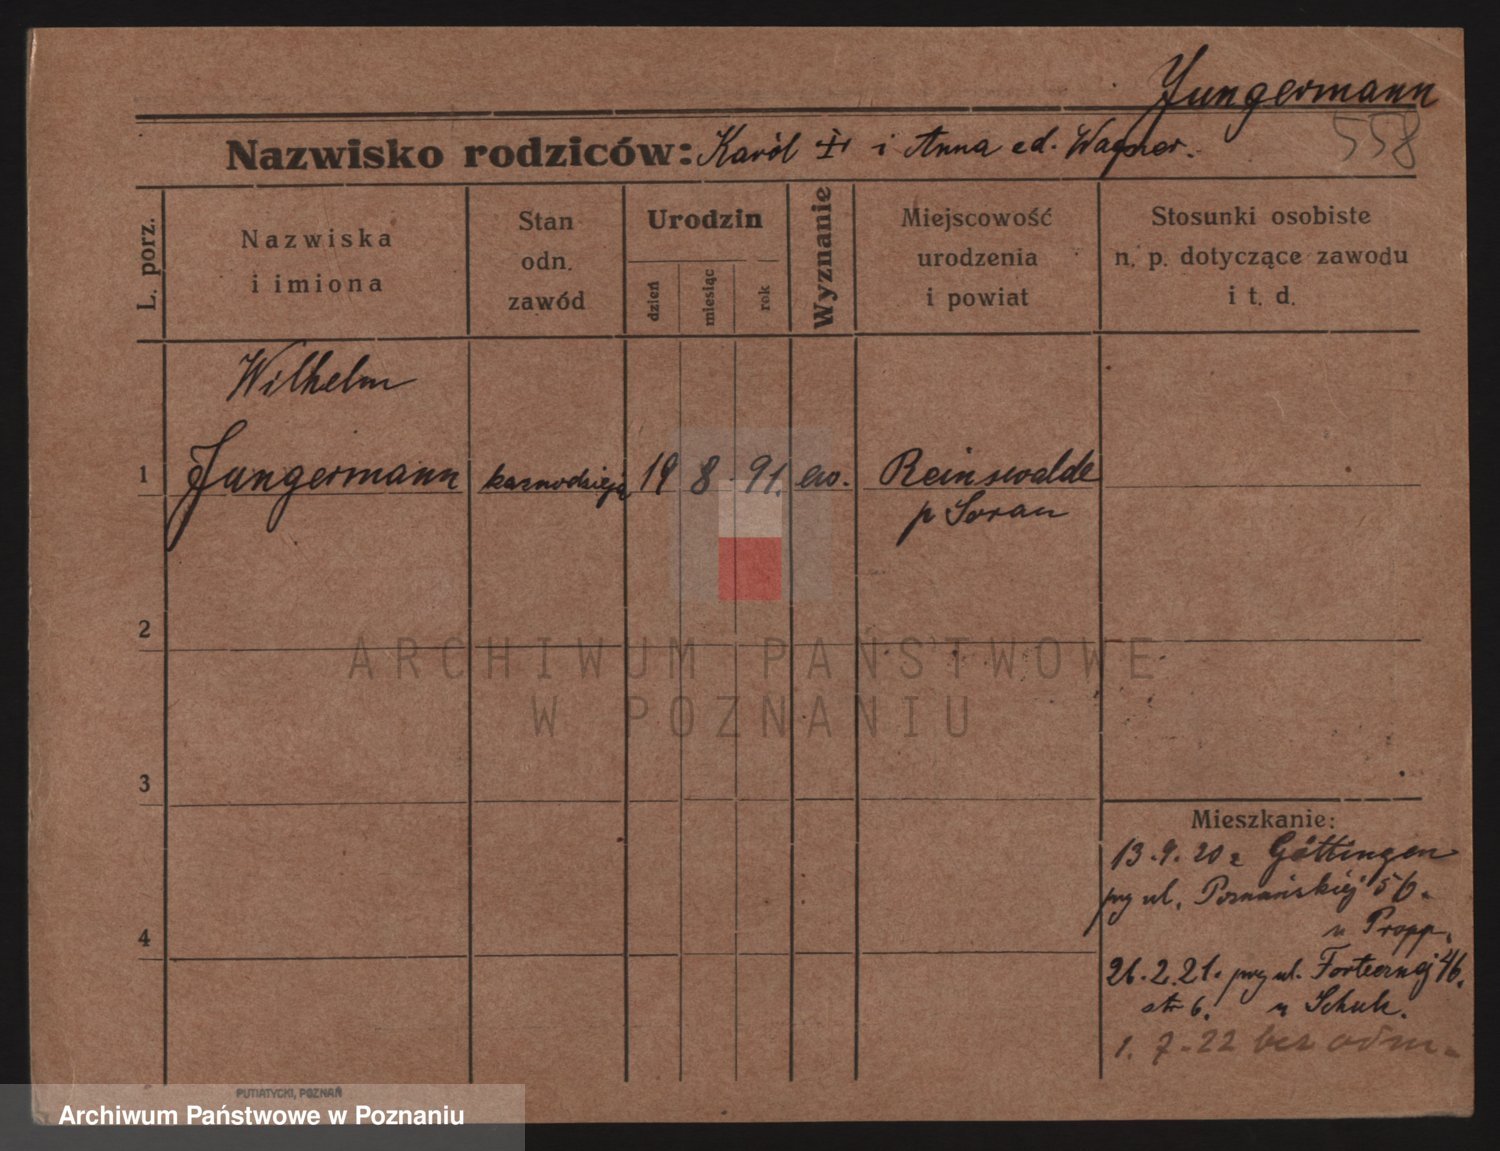 Jungermann
558
Nazwisko rodziców: Karól i Anna Wagner.
L. porz.
Nazwiska
i imiona
Stan
odn.
zawód
Urodzin
dzień
miesiąc
rok
Wyznanie
Miejscowość
urodzenia
i powiat
Stosunki osobiste
n. p. dotyczące zawodu
i t. d.
Wilhelm
1 Jungermann kaznodzieja 19 8 91. ew. Reinswalde
p Sorau
2
3
4
Mieszkanie:
13.9.20 z Göttingen
przy ul. Poznańskiej 56.
u Propp.
26.2.21. przy ul. Fortecznej 46.
str 6. u Schulz.
1. 7-22 bez odm.
PUTIATYCKI, POZNAŃ
ARCHIWUM PAŃSTWOWE
W POZNANIU
Archiwum Państwowe w Poznaniu